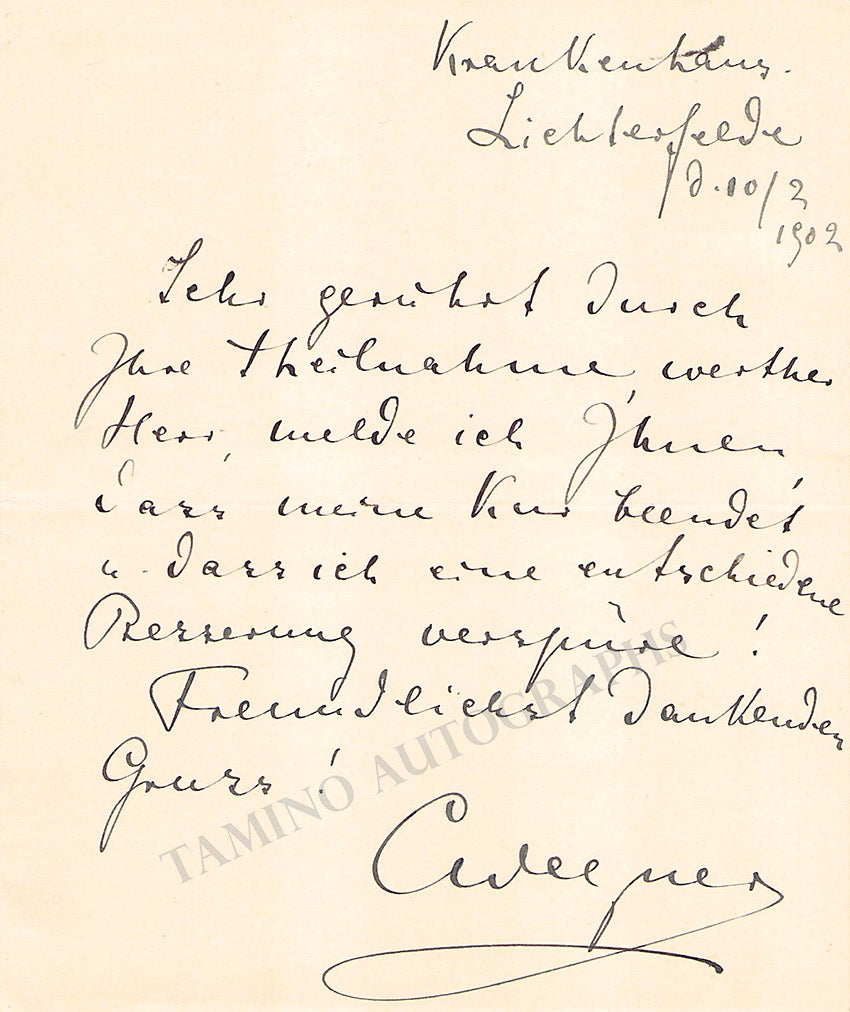 Krankenhaus.
Lichterfelde
d. 10/2
1902
Sehr gerührt durch
Ihre Theilnahme, werther
Herr, melde ich Ihnen,
dass meine Kur beendet
u. dass ich eine entschiedene
Besserung verspüre!
Freundlichst dankenden
Gruss!
TAMINO AUTOGRAPHS